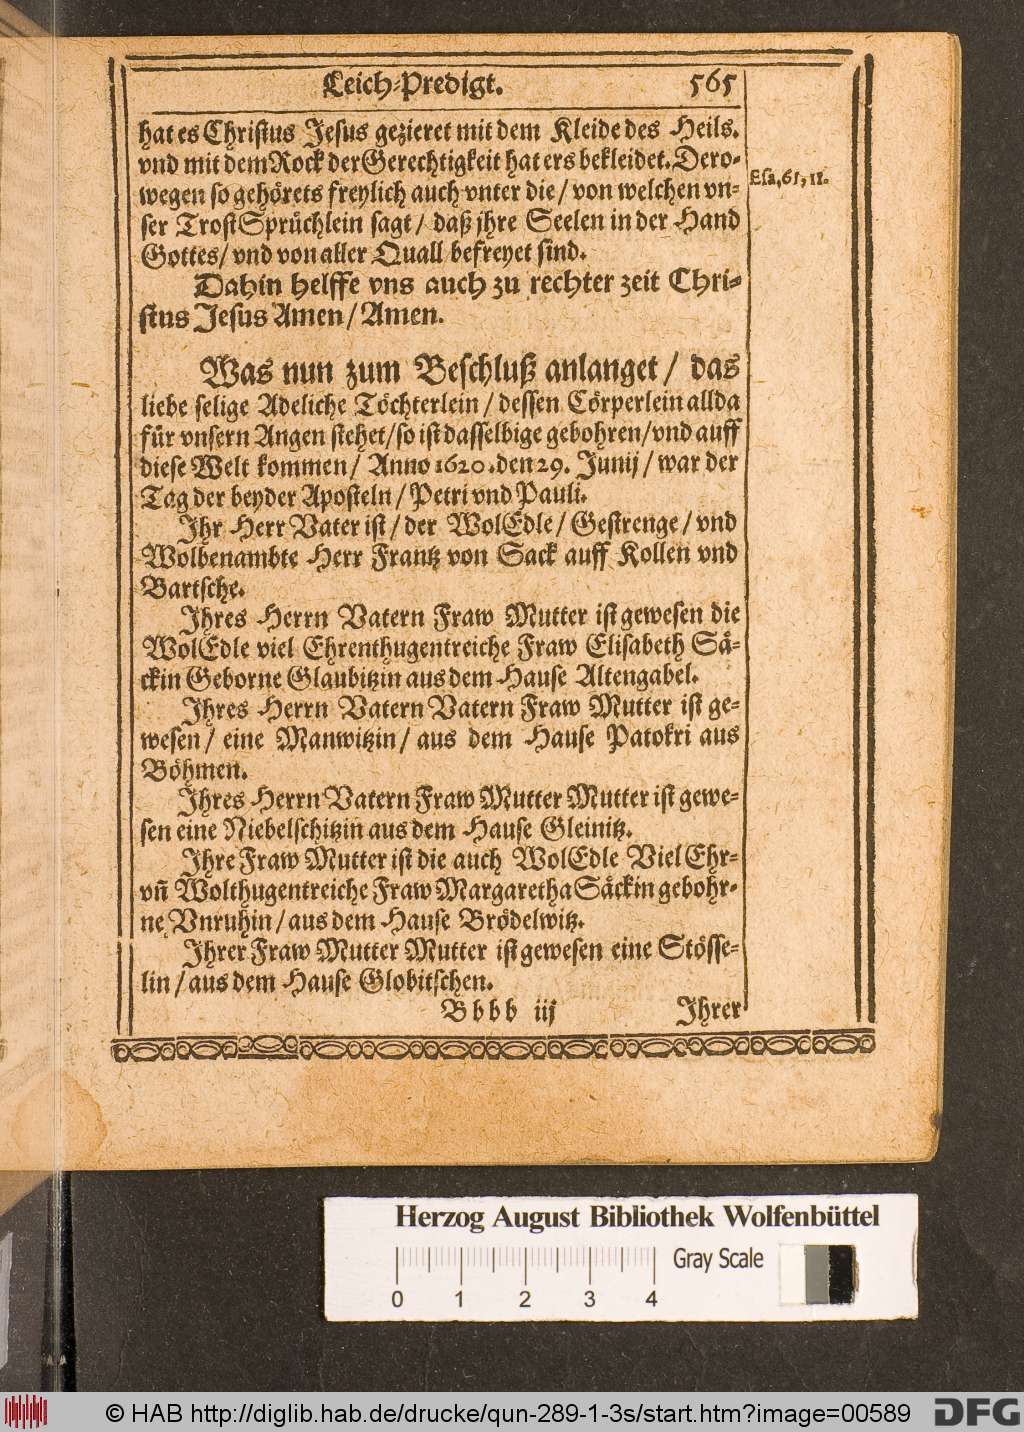 Leich-Predigt. 565
hat es Christus Jesus gezieret mit dem Kleide des Heils.
vnd mit dem Rock der Gerechtigkeit hat ers bekleidet. Dero-
Esa. 61, 11.
wegen so gehörets freylich auch vnter die / von welchen vn-
ser Trost Sprüchlein sagt / daß jhre Seelen in der Hand
Gottes / vnd von aller Quall befreyet sind.
Dahin helffe vns auch zu rechter zeit Chri-
stus Jesus Amen / Amen.
Was nun zum Beschluß anlanget / das
liebe selige Adeliche Töchterlein / dessen Cörperlein allda
für vnsern Augen stehet / so ist dasselbige gebohren / vnd auff
diese Welt kommen / Anno 1620. den 29. Junij / war der
Tag der beyder Aposteln / Petri vnd Pauli.
Ihr Herr Vater ist / der WolEdle / Gestrenge / vnd
Wolbenambte Herr Frantz von Sack auff Kollen vnd
Bartsche.
Ihres Herrn Vatern Fraw Mutter ist gewesen die
WolEdle viel Ehrenthugentreiche Fraw Elisabeth Sä-
ckin Geborne Glaubitzin aus dem Hause Altengabel.
Ihres Herrn Vatern Vatern Fraw Mutter ist ge-
wesen / eine Manwitzin / aus dem Hause Patokri aus
Böhmen.
Ihres Herrn Vatern Fraw Mutter Mutter ist gewe-
sen eine Niebelschitzin aus dem Hause Gleinitz.
Ihre Fraw Mutter ist die auch WolEdle Viel Ehr-
vñ Wolthugentreiche Fraw Margaretha Säckin gebohr-
ne Vnruhin / aus dem Hause Brödelwitz.
Ihrer Fraw Mutter Mutter ist gewesen eine Stösse-
lin / aus dem Hause Globitschen.
Bbbb iij Ihrer
Herzog August Bibliothek Wolfenbüttel
Gray Scale
0 1 2 3 4
© HAB http://diglib.hab.de/drucke/qun-289-1-3s/start.htm?image=00589 DFG